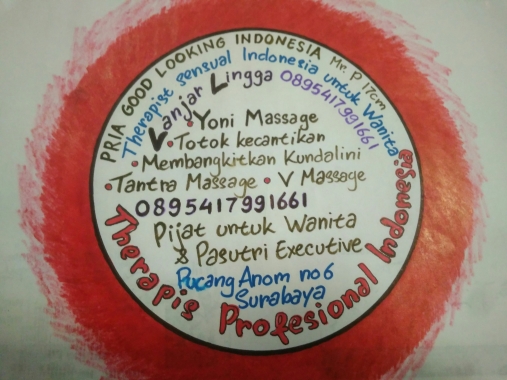 PRIA GOOD LOOKING INDONESIA Mr. P 17cm
Therapist sensual Indonesia untuk Wanita
Vanjar Lingga 0895417991661
• Yoni Massage
• Totok kecantikan
• Membangkitkan Kundalini
• Tantra Massage • V Massage
0895417991661
Pijat untuk Wanita
& Pasutri Executive
Pucang Anom no 6
Surabaya
Therapis Profesional Indonesia